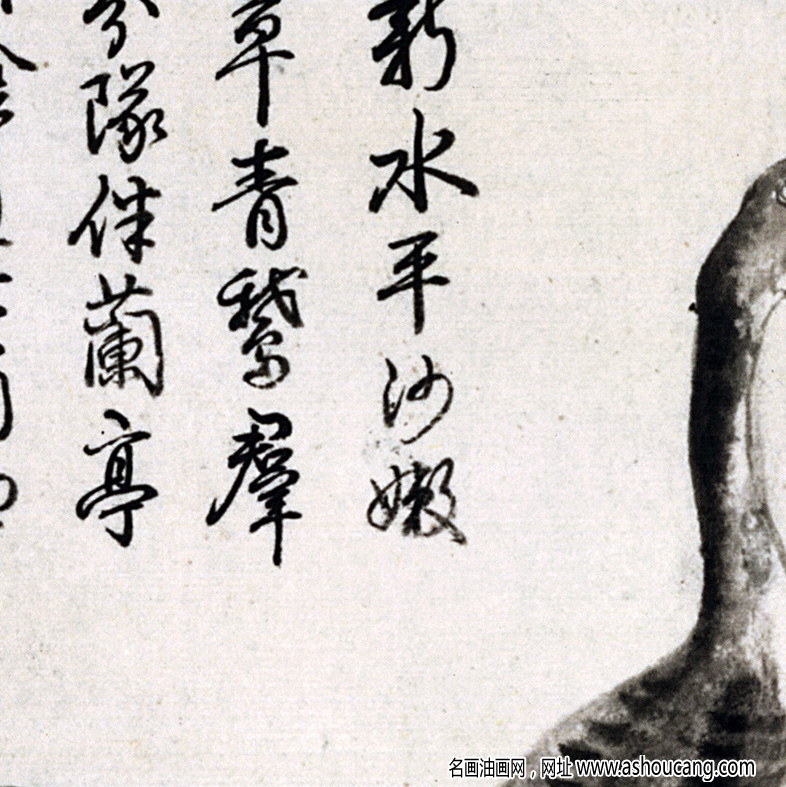 新水平沙嫩
草青鵞羣
分隊伴蘭亭
名画油画网，网址 www.ashoucang.com